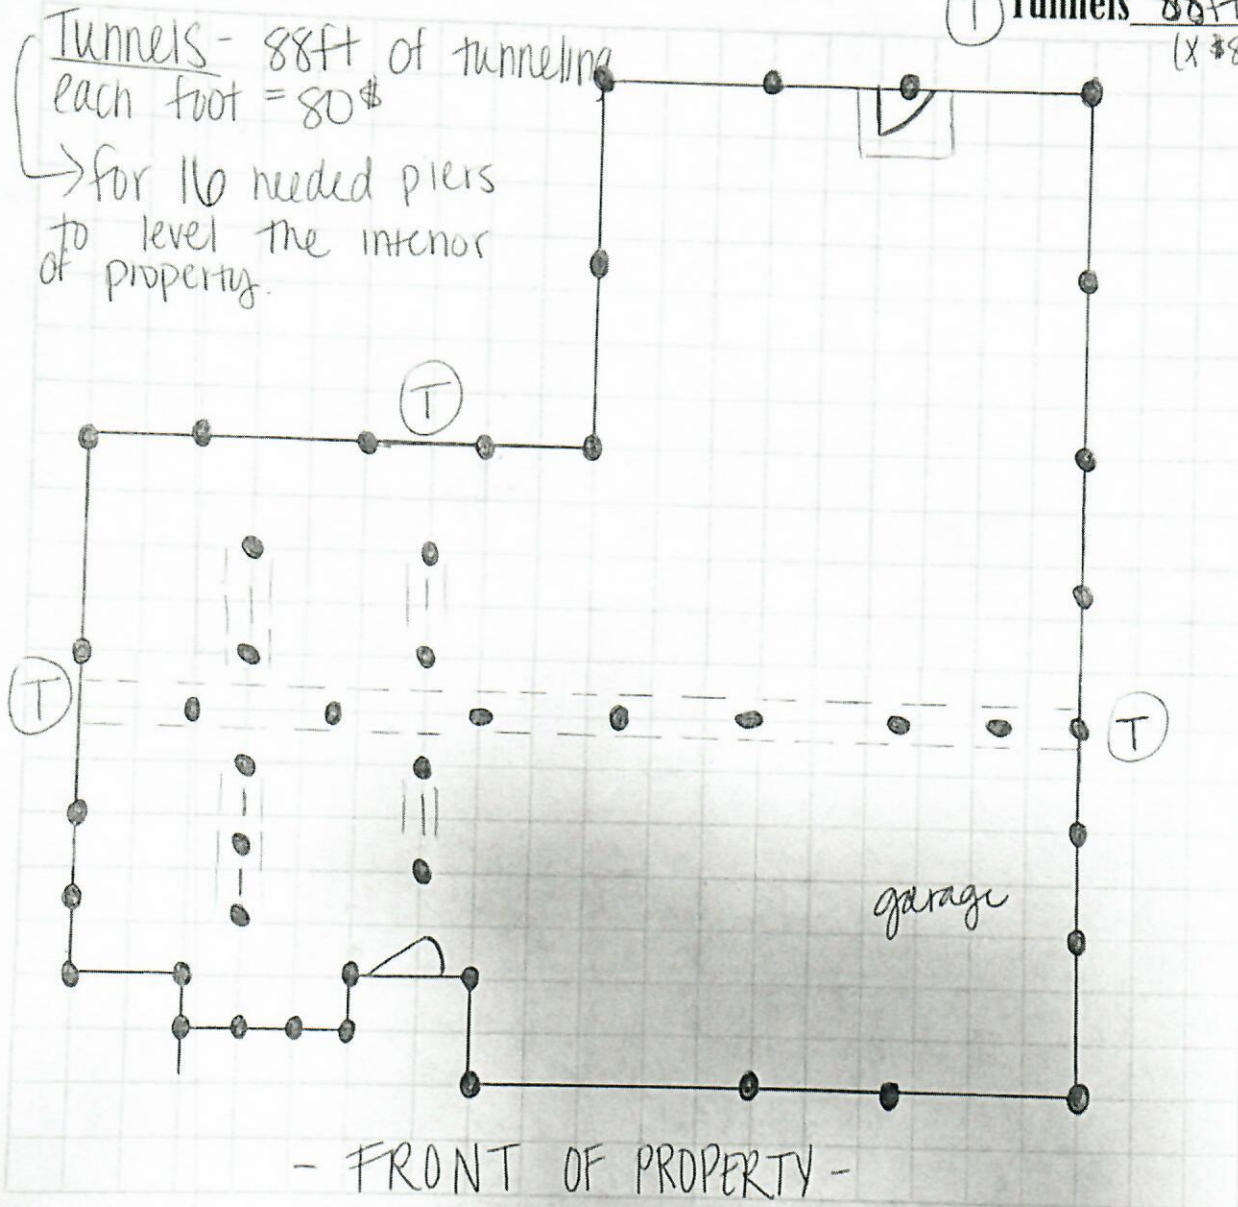 T Tunnels 88ft
(x $8
Tunnels - 88ft of tunneling
each foot = 80$
→ for 16 needed piers
to level the interior
of property.
T
T
T
garage
- FRONT OF PROPERTY -